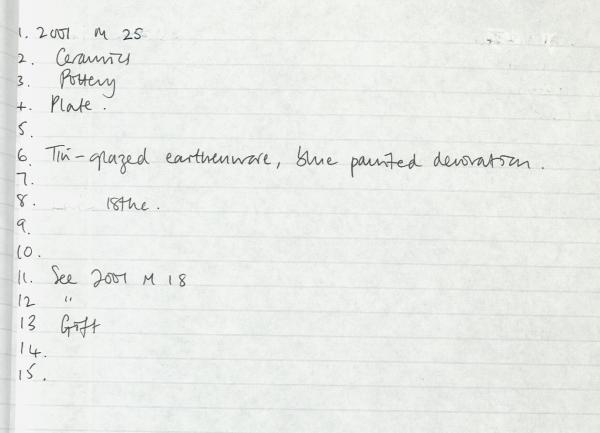 1. 2001 M 25
2. Ceramics
3. Pottery
4. Plate.
5.
6. Tin-glazed earthenware, blue painted decoration.
7.
8. 18thc.
9.
10.
11. See 2001 M 18
12 "
13 Gift
14.
15.